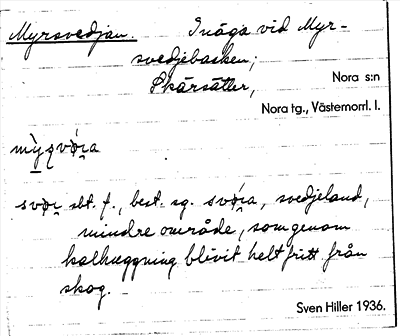 Myrsvedjan. Inäga vid Myr-
svedjebacken;
Skärsätter, Nora s:n
Nora tg., Västernorrl. l.
svør sbt. f., best. sg. svø̀ra, svedjeland,
mindre område, som genom
kalhuggning blivit helt fritt från
skog. –
Sven Hiller 1936.